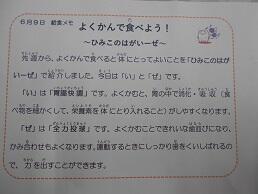 6月9日 給食メモ
よくかんで食べよう！
～ひみこのはがいーぜ～
先週から、よくかんで食べると体にとってよいことを「ひみこのはが
いーぜ」で紹介しました。今日は「い」と「ぜ」です。
「い」は「胃腸快調」です。よくかむと、胃の中で消化・吸収（食
べ物を細かくして、栄養素を体にとり入れること）がしやすくなります。
「ぜ」は「全力投球」です。よくかむことできれいな歯並びになり、
かみ合わせもよくなります。運動するときにしっかり歯をくいしばれるの
で、力を出すことができます。